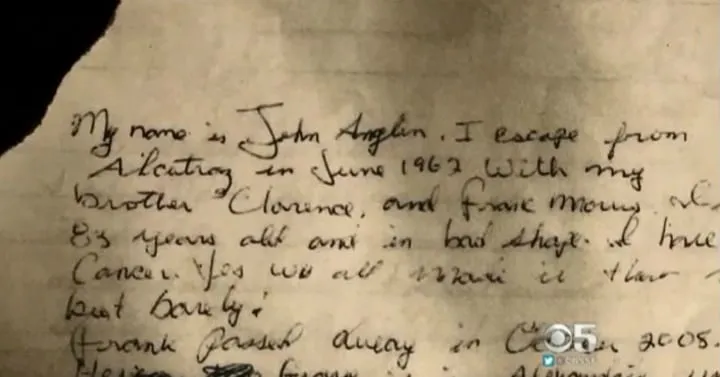 My name is John Anglin. I escape from
Alcatraz in June 1962 With my
brother Clarence, and Frank Morris. I
83 years old and in bad shape. I have
Cancer. Yes we all made it that
but barely!
Frank Passed away in 2008.
Alexandria
5